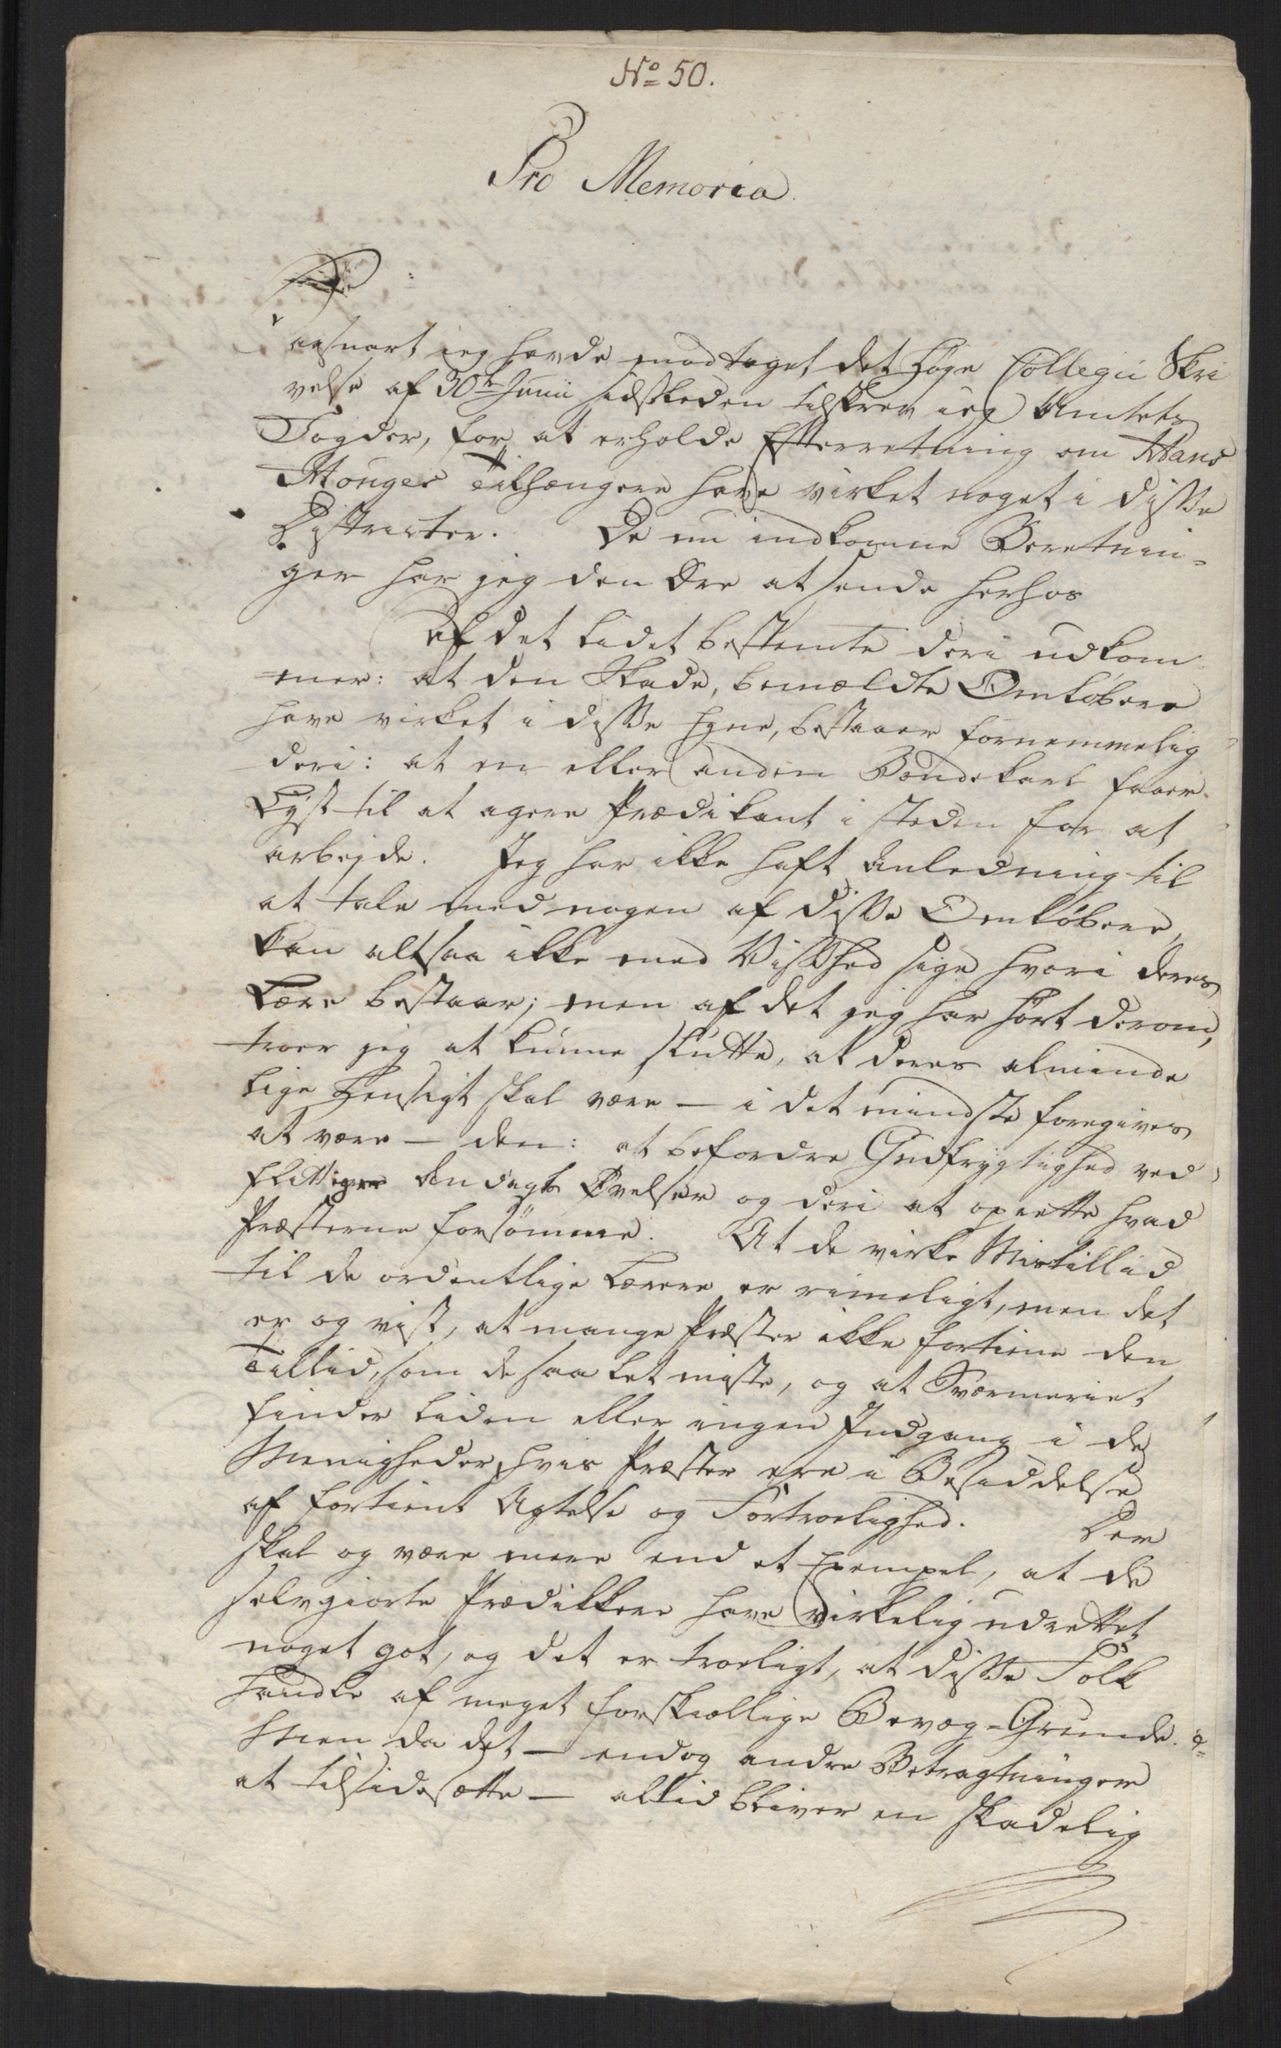 No 50.
Pro Memoria
Saasnart jeg havde modtaget det Høye Collegii Skri
velse af 30te Junii sidstleden tilskrev jeg Amtets
Fogder, for at erholde Efterretning om Hans
Houges Tilhængere have virket noget i disse
Districter. De nu indkomne Beretnin-
ger har jeg den Ære at sende herhos
Af det lidet bestemte deri udkom
mer: at den Skade, bemældte Omløbere
have virket i disse Egne, bestaaer fornemmelig
deri: at en eller anden Bondekarl faaer
Lyst til at agere Prædikant i steden for at
arbejde. Jeg har ikke haft Anledning til
at tale med nogen af disse Omløbere,
kan altsaa ikke med Vished sige hvori deres
Lære bestaar; men af det jeg har hørt derom,
troer jeg at kunne slutte, at deres alminde
lige Hensigt skal være — i det mindste foregives
at være — den: at befordre Gudfrygtighed ved
flittige Andagts Øvelser og deri at oprette hvad
Præsterne forsømme. At de virke Mistillid
til de ordentlige Lærere er rimeligt, men det
er og vist, at mange Præster ikke fortiene den
Tillid, som de saa let miste, og at Sværmeriet
finder liden eller ingen Indgang i de
Menigheder, hvis Præster ere i Besiddelse
af fortient Agtelse og Fortroelighed. Der
skal og være mere end et Exempel, at de
selvgiorte Prædikkere have virkelig udrettet
noget got, og det er troeligt, at disse Folk
handle af meget forskiællige Bevæg-Grunde.
Men da det — endog andre Betragtninger
at tilsidesætte — altid bliver en skadelig